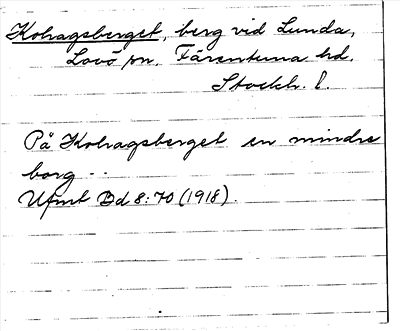 Kohagsberget, berg vid Lunda,
Lovö sn. Färentuna hd.
Stockh. l.
På Kohagsberget en mindre
borg - -
Ufmt Bd 8:70 (1918).